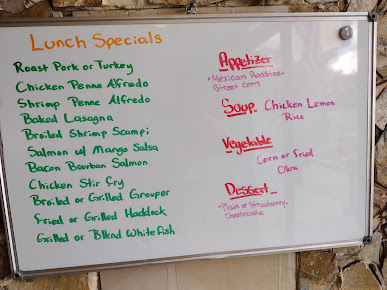 Lunch Specials
Roast Pork or Turkey
Chicken Penne Alfredo
Shrimp Penne Alfredo
Baked Lasagna
Broiled Shrimp Scampi
Salmon w/ Mango Salsa
Bacon Bourbon Salmon
Chicken Stir fry
Broiled or Grilled Grouper
fried or Grilled Haddock
Grilled or Blknd Whitefish
Appetizer
Mexican Roasted
Street corn
Soup Chicken Lemon
Rice
Vegetable
Corn or fried
Okra
Dessert
Plain or Strawberry
Cheesecake